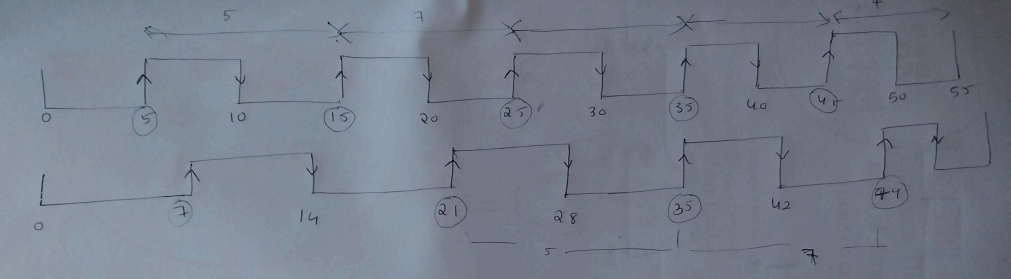 5 7 7
0 5 10 15 20 25 30 35 40 45 50 55
0 7 14 21 28 35 42 49
5 7